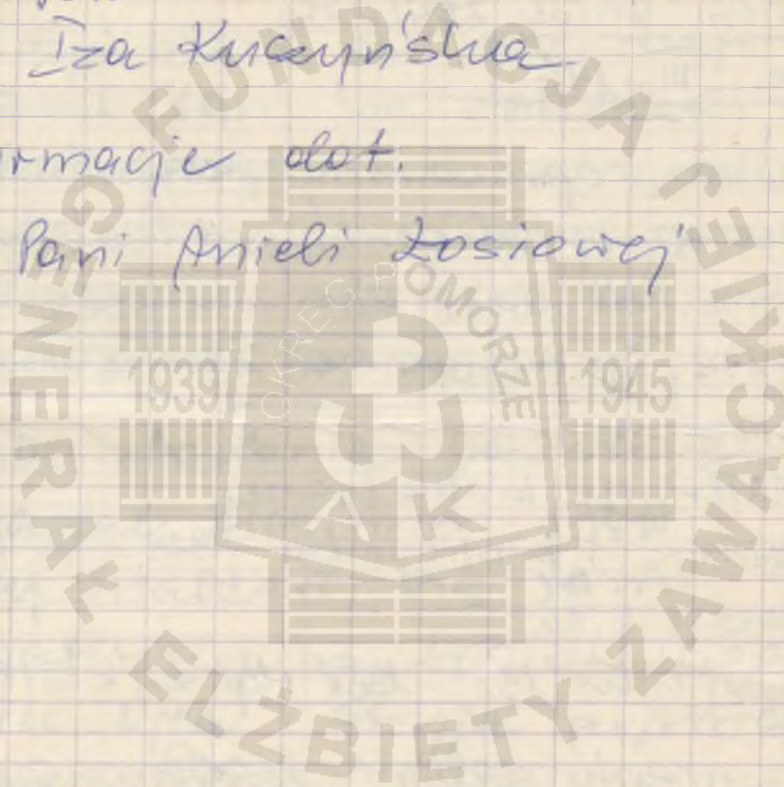 Iza Kuczyńska
rmacje dot.
Pani Anieli Łosiowej
FUNDACJA GENERAŁ ELŻBIETY ZAWACKIEJ
OKRĘG POMORZE
1939
1945
AK